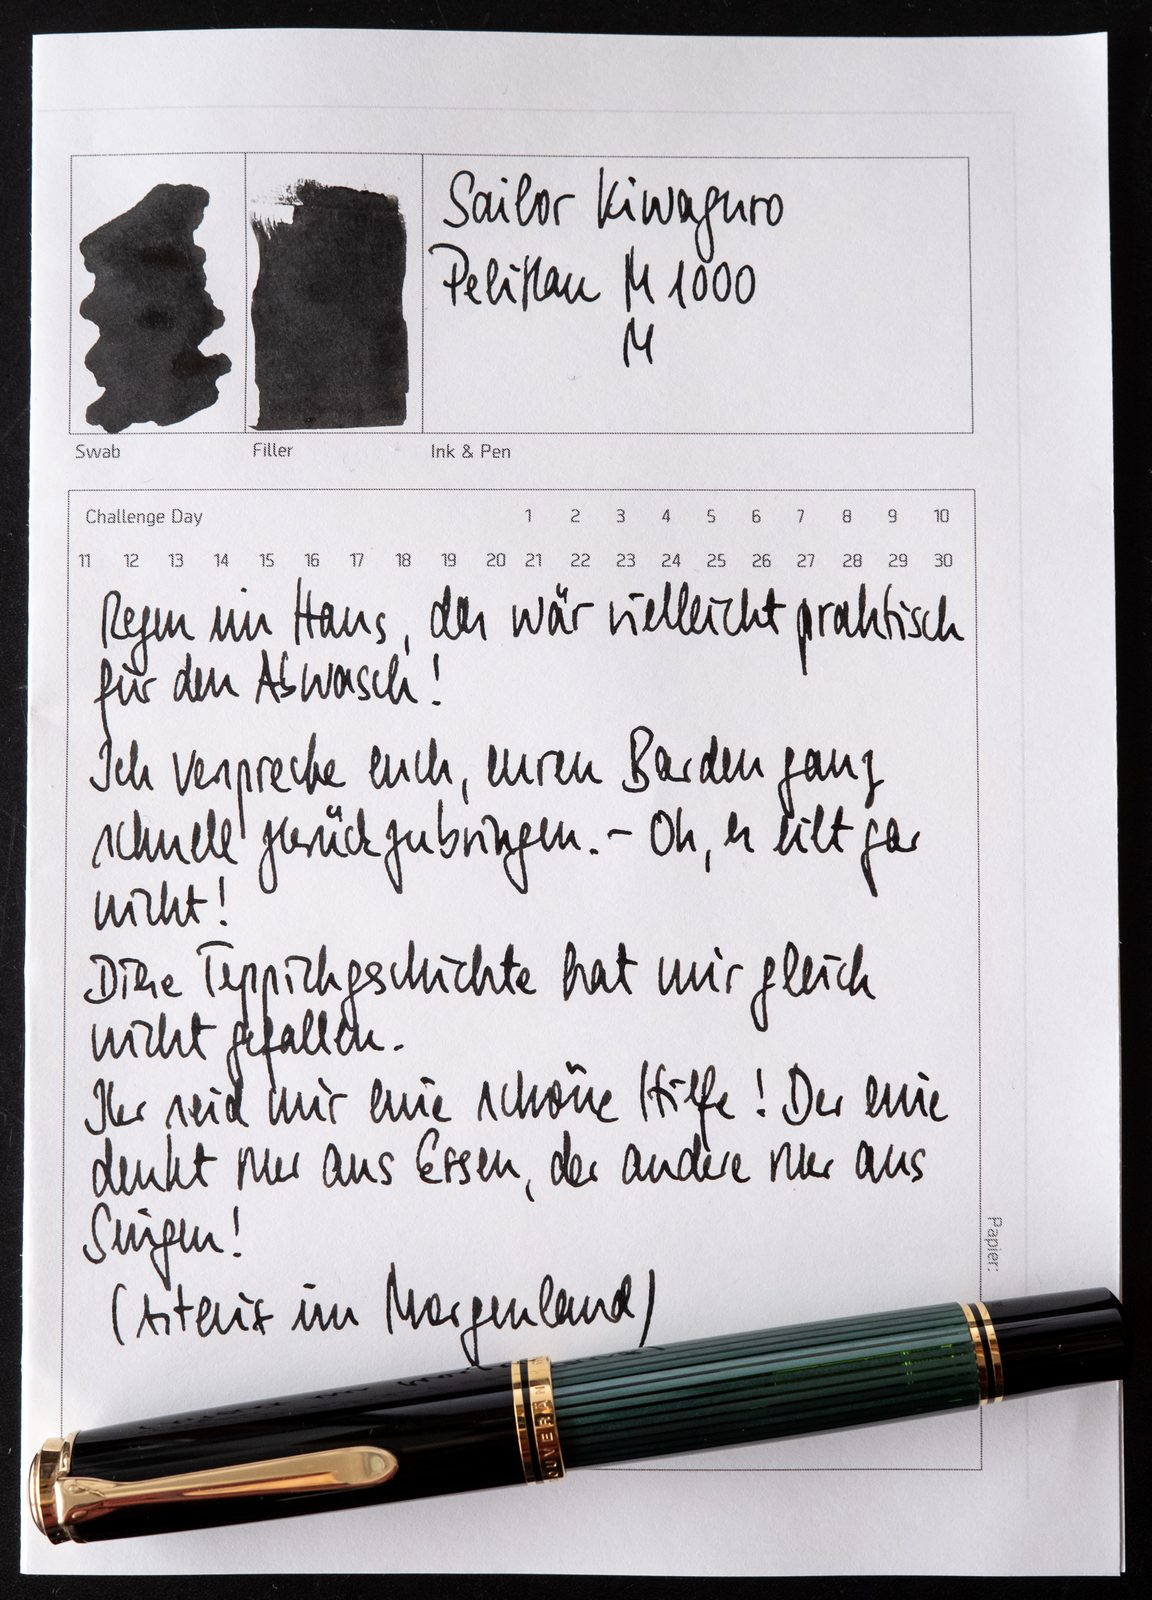 Sailor Kiwaguro
Pelikan M 1000
M
Swab
Filler
Ink & Pen
Challenge Day 1 2 3 4 5 6 7 8 9 10
11 12 13 14 15 16 17 18 19 20 21 22 23 24 25 26 27 28 29 30
Regen im Haus, das wär vielleicht praktisch
für den Abwasch!
Ich verspreche euch, euren Barden ganz
schnell zurückzubringen. - Oh, es eilt gar
nicht!
Diese Teppichgeschichte hat mir gleich
nicht gefallen.
Ihr seid mir eine schöne Hilfe! Der eine
denkt nur ans Essen, der andere nur ans
Singen!
(Asterix im Morgenland)
Papier: